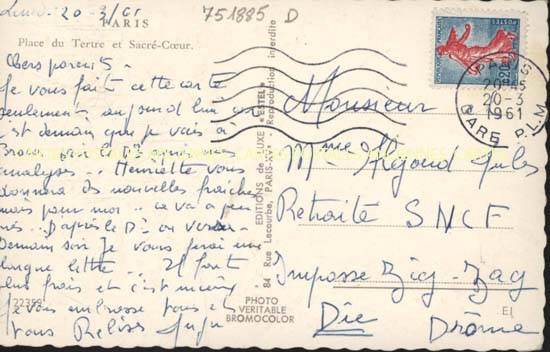 Lundi 20-3/61
751885 D
PARIS
Place du Tertre et Sacré-Cœur.
Chers parents -
Je vous fait cette carte
seulement aujourd'hui car
c'est demain que je vais à
pour
analyses - Henriette vous
donnera des nouvelles fraîches
mais pour moi .. ça va à peu
près .. D'après le Dr on verra
Demain soir je vous ferai une
longue lettre .. Il fait
plus frais et c'est mieux
Je vous embrasse tous et
vous
22359
EDITIONS de LUXE "ESTEL"
84 Rue Lecourbe, PARIS-XVe - Reproduction interdite
PHOTO
VERITABLE
BROMOCOLOR
POSTES
REPUBLIQUE FRANÇAISE
0,20
PARIS
20-3
1961
GARE P.L.M
Monsieur
Mme Jules
Retraité SNCF
Impasse Zig-Zag
Die Drôme
EI